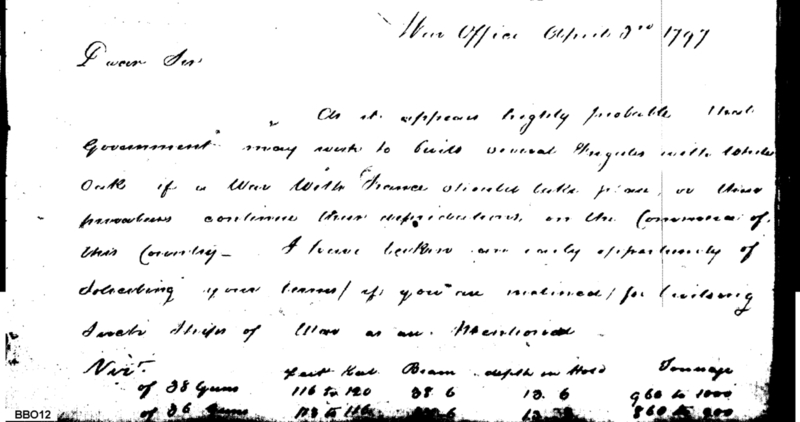 War Office April 3rd 1797
Dear Sir
As it appears highly probable that
Government may wish to build several Frigates with White
Oak if a War With France should take place, or their
privateers continue their depredations, on the Commerce of
this Country — I have taken an early opportunity of
Soliciting your terms / if you are inclined / for building
Such Ships of War as are Mentioned
Feet Keel Beam depth in Hold Tonnage
of 38 Guns 116 to 120 38 6 13 6 960 to 1000
of 36 Guns to 116 6 13 860 to 900
BBO12